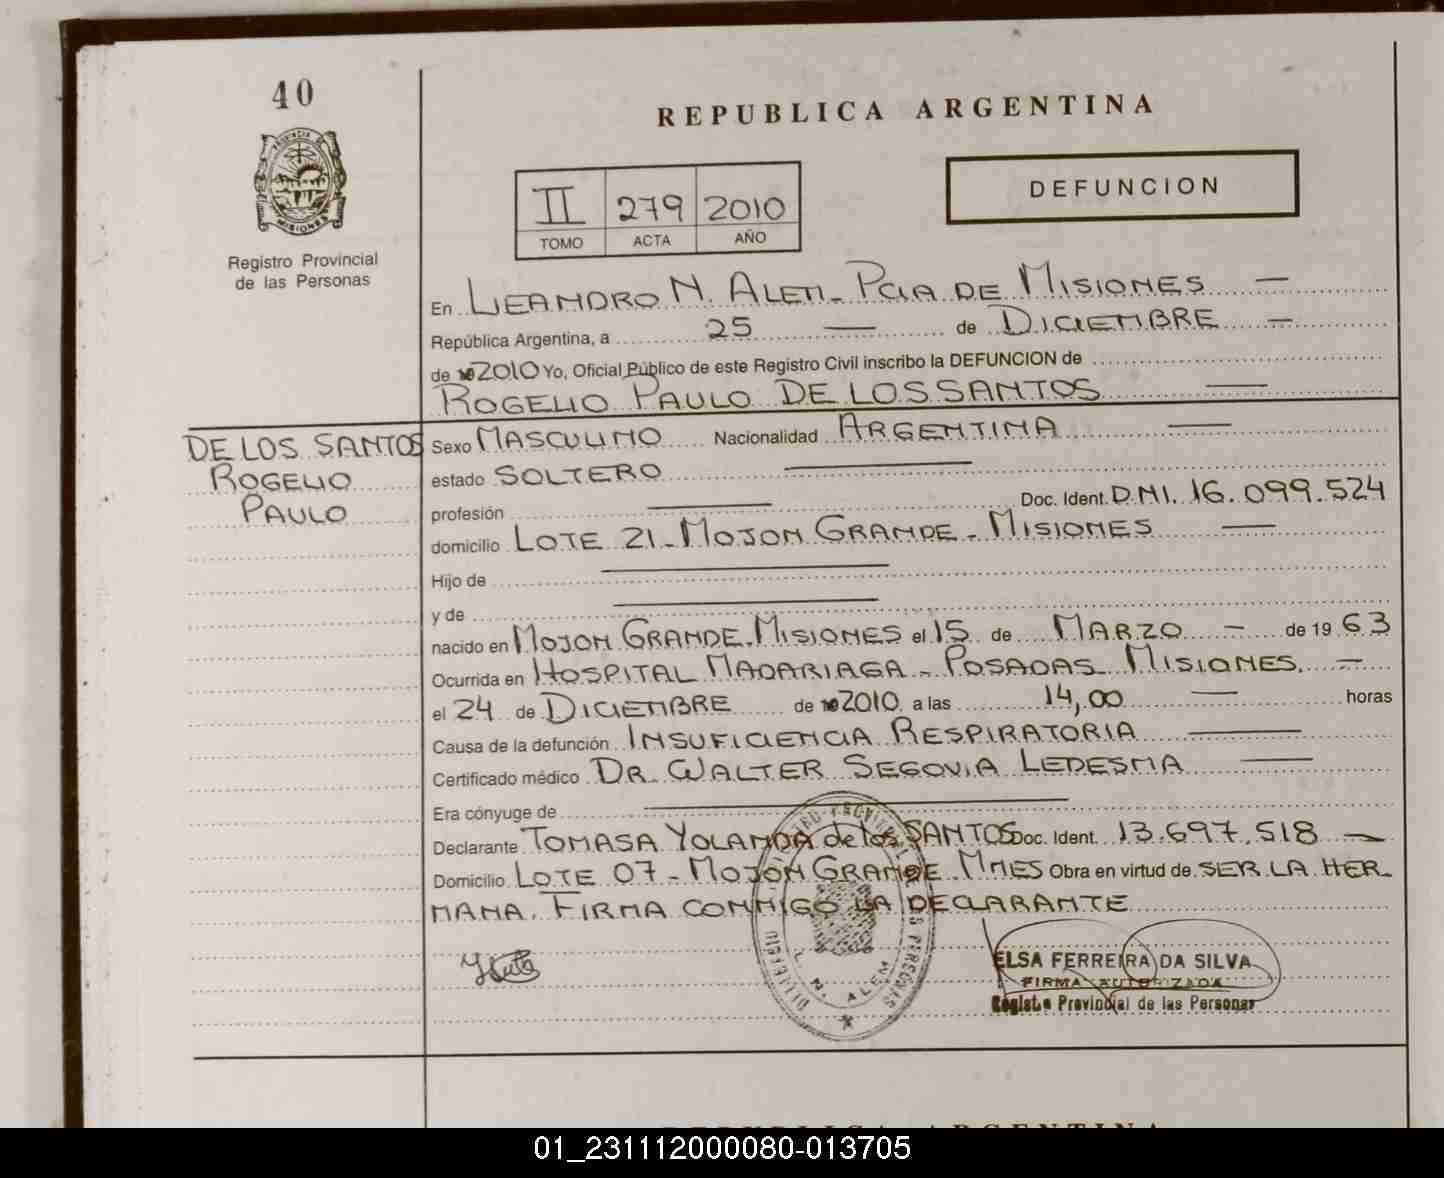 40
REPUBLICA ARGENTINA
PROVINCIA DE
MISIONES
Registro Provincial
de las Personas
DEFUNCION
II 279 2010
TOMO ACTA AÑO
En LEANDRO N. ALEM - PCIA DE MISIONES —
República Argentina, a 25 — de DICIEMBRE —
de 2010 Yo, Oficial Público de este Registro Civil inscribo la DEFUNCION de
ROGELIO PAULO DE LOS SANTOS —
DE LOS SANTOS
ROGELIO
PAULO
Sexo MASCULINO Nacionalidad ARGENTINA —
estado SOLTERO —
profesión — Doc. Ident. D.N.I. 16.099.524
domicilio LOTE 21 - MOJON GRANDE - MISIONES —
Hijo de —
y de —
nacido en MOJON GRANDE - MISIONES el 15 de MARZO — de 19 63
Ocurrida en HOSPITAL MADARIAGA - POSADAS - MISIONES. —
el 24 de DICIEMBRE de 2010 a las 14,00 — horas
Causa de la defunción INSUFICIENCIA RESPIRATORIA —
Certificado médico DR. WALTER SEGOVIA LEDESMA —
Era cónyuge de —
Declarante TOMASA YOLANDA de los SANTOS Doc. Ident. 13.697.518 —
Domicilio LOTE 07 - MOJON GRANDE - MNES Obra en virtud de SER LA HER-
MANA. FIRMA CONMIGO LA DECLARANTE
L. N. ALEM
ELSA FERREIRA DA SILVA
FIRMA AUTORIZADA
Registro Provincial de las Personas
REPUBLICA ARGENTINA
01_231112000080-013705